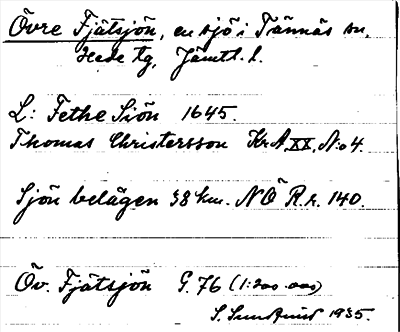 Övre Fjätsjön, en sjö i Tännäs sn,
Hede tg, Jämtl. l.
L: Fethe Siön 1645.
Thomas Christersson Kr.A. XX, N:o 4.
Sjön belägen 38 km. NÖ R.r. 140.
Öv. Fjätsjön G. 76 (1:200.000)
S. Sundquist 1935.